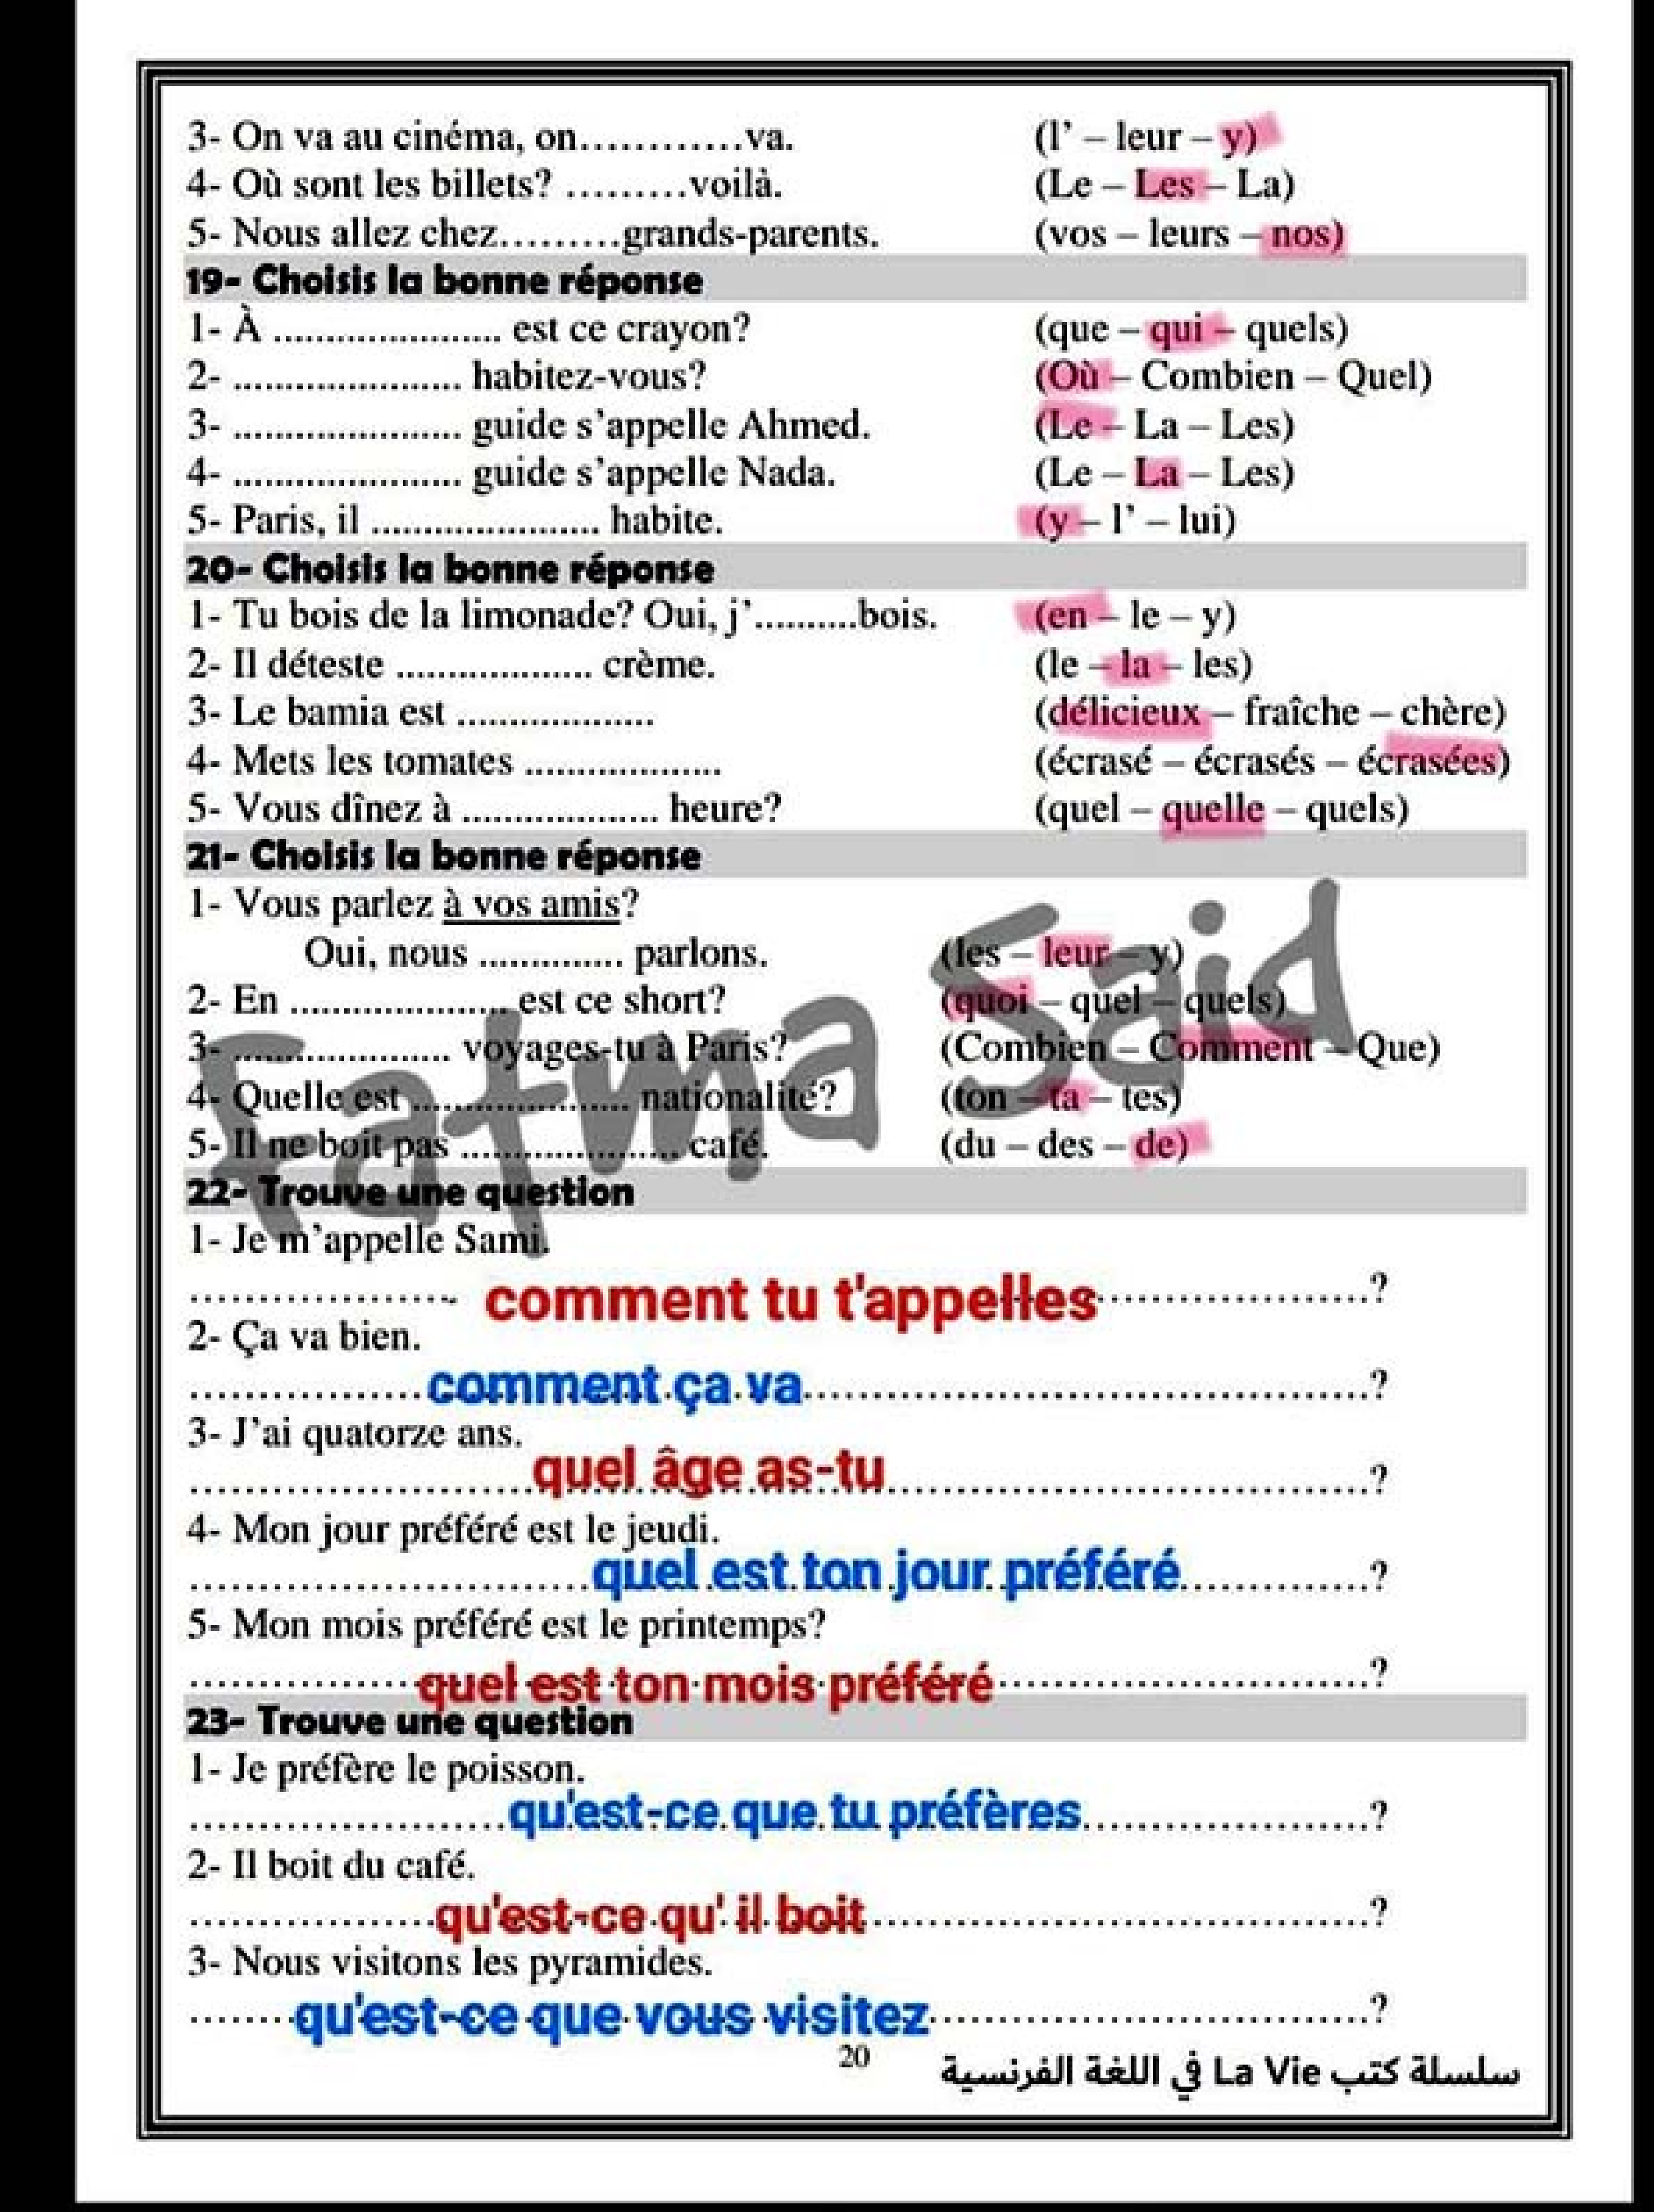 3- On va au cinéma, on............va. (l' – leur – y)
4- Où sont les billets? .........voilà. (Le – Les – La)
5- Nous allez chez.........grands-parents. (vos – leurs – nos)
19- Choisis la bonne réponse
1- À ...................... est ce crayon? (que – qui – quels)
2- ...................... habitez-vous? (Où – Combien – Quel)
3- ...................... guide s'appelle Ahmed. (Le – La – Les)
4- ...................... guide s'appelle Nada. (Le – La – Les)
5- Paris, il ...................... habite. (y – l' – lui)
20- Choisis la bonne réponse
1- Tu bois de la limonade? Oui, j'..........bois. (en – le – y)
2- Il déteste ................... crème. (le – la – les)
3- Le bamia est ................... (délicieux – fraîche – chère)
4- Mets les tomates ................... (écrasé – écrasés – écrasées)
5- Vous dînez à ................... heure? (quel – quelle – quels)
21- Choisis la bonne réponse
1- Vous parlez à vos amis?
Oui, nous .............. parlons. (les – leur – y)
2- En ..................... est ce short? (quoi – quel – quels)
3- ..................... voyages-tu à Paris? (Combien – Comment – Que)
4- Quelle est ..................... nationalité? (ton – ta – tes)
5- Il ne boit pas ..................... café. (du – des – de)
Fatma Said
22- Trouve une question
1- Je m'appelle Sami.
................... comment tu t'appelles...................?
2- Ça va bien.
.................comment ça va........................................?
3- J'ai quatorze ans.
........................quel âge as-tu..................................?
4- Mon jour préféré est le jeudi.
............................quel est ton jour préféré.............?
5- Mon mois préféré est le printemps?
................quel est ton mois préféré..........................?
23- Trouve une question
1- Je préfère le poisson.
......................qu'est-ce que tu préfères....................?
2- Il boit du café.
.................qu'est-ce qu' il boit...................................?
3- Nous visitons les pyramides.
.......qu'est-ce que vous visitez...............................?
20
سلسلة كتب La Vie في اللغة الفرنسية